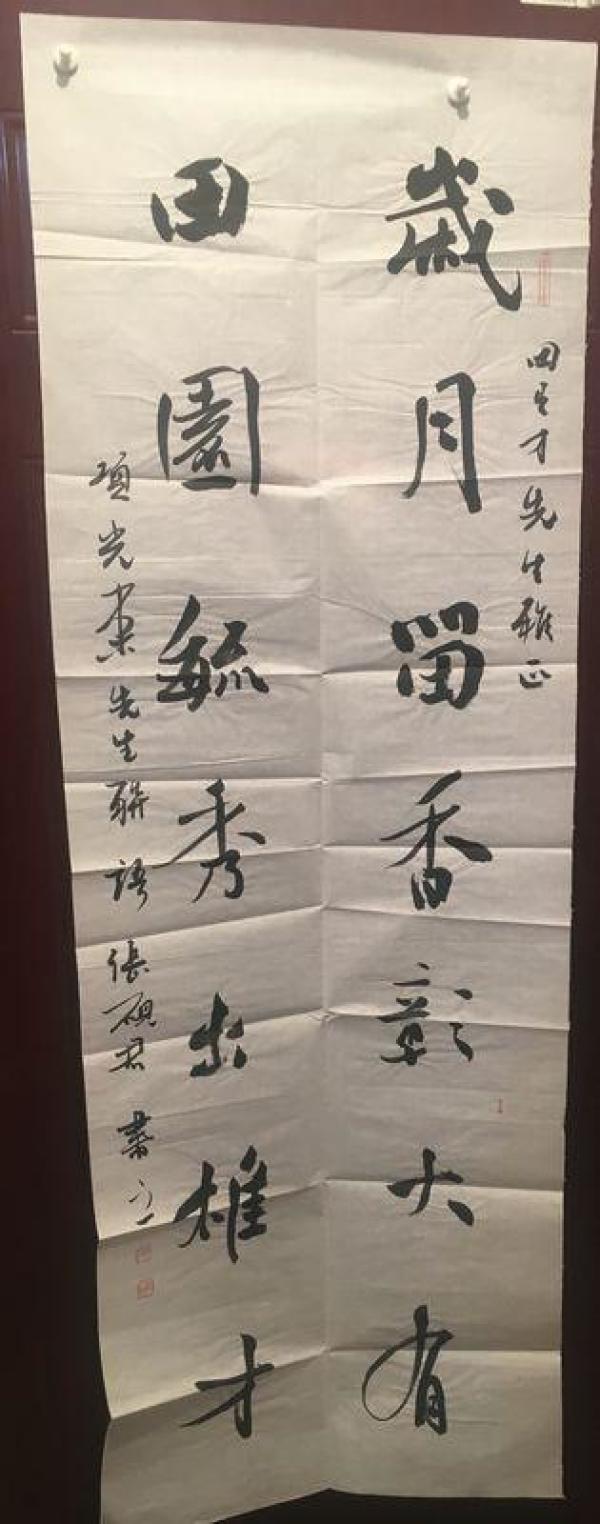 田才先生雅正
歲月留香彰大有
田園毓秀出雄才
項光先生聯語張碩君書